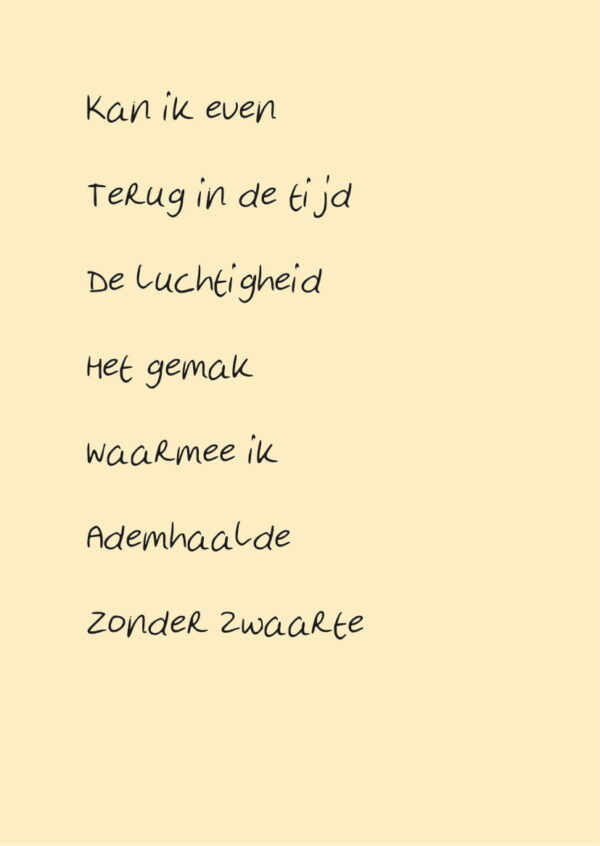 Kan ik even
Terug in de tijd
De luchtigheid
Het gemak
Waarmee ik
Ademhaalde
Zonder zwaarte